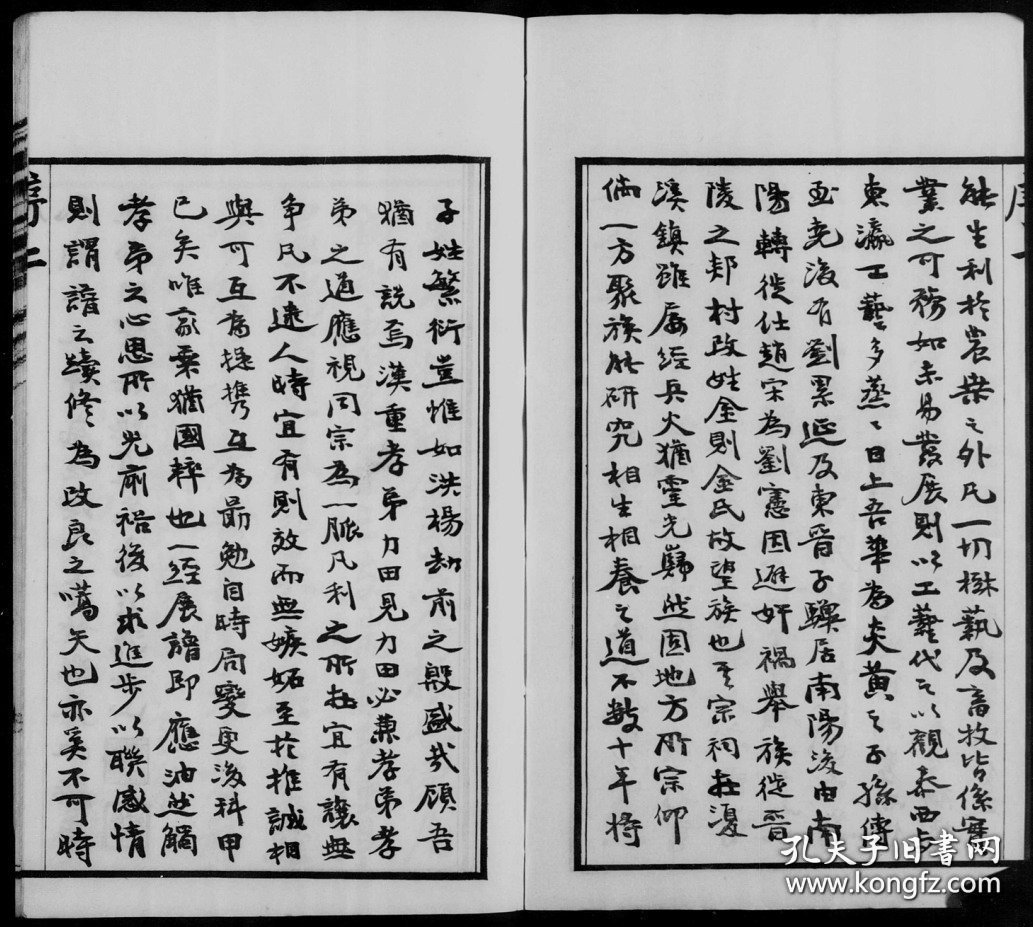 能生利於農桑之外凡一切樹藝及畜牧皆係實
業之可務如未易發展則以工藝代之以觀泰西与
東瀛工藝多蒸々日上吾華為炎黃之子孫傳
至堯後有劉累延及東晉子驥居南陽後由南
陽轉徙仕趙宋為劉憲因避奸禍舉族徙晉
陵之郏村改姓金則金氏故望族也其宗祠在湲
溪鎮雖屢經兵火猶靈光巋然固地方所宗仰
倘一方聚族能研究相生相養之道不數十年將
子姓繁衍豈惟如洪楊劫前之殷盛哉顧吾
猶有説焉漢重孝弟力田見力田必兼孝弟孝
弟之道應視同宗為一脈凡利之所在宜有讓無
争凡不遠人時宜有則效而無嫉妬至於推誠相
與可互為提携互為勗勉自時局變更後科甲
已矣唯家乘猶國粹也一經展譜即應油然觸
孝弟之心思所以光前裕後以求進步以聯感情
則謂譜之續修為改良之嚆矢也亦奚不可時
孔夫子旧书网
www.kongfz.com